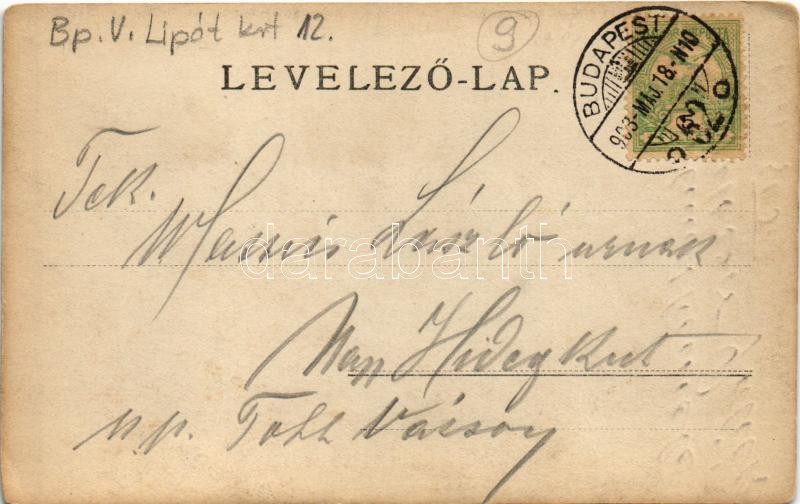 Bp. V. Lipót krt 12.
9
LEVELEZŐ-LAP.
BUDAPEST
903 MÁJ 18. N10
Tek.
László urnak
Nagy Hidegkut
u. p. Tóth Vázsony
darabanth